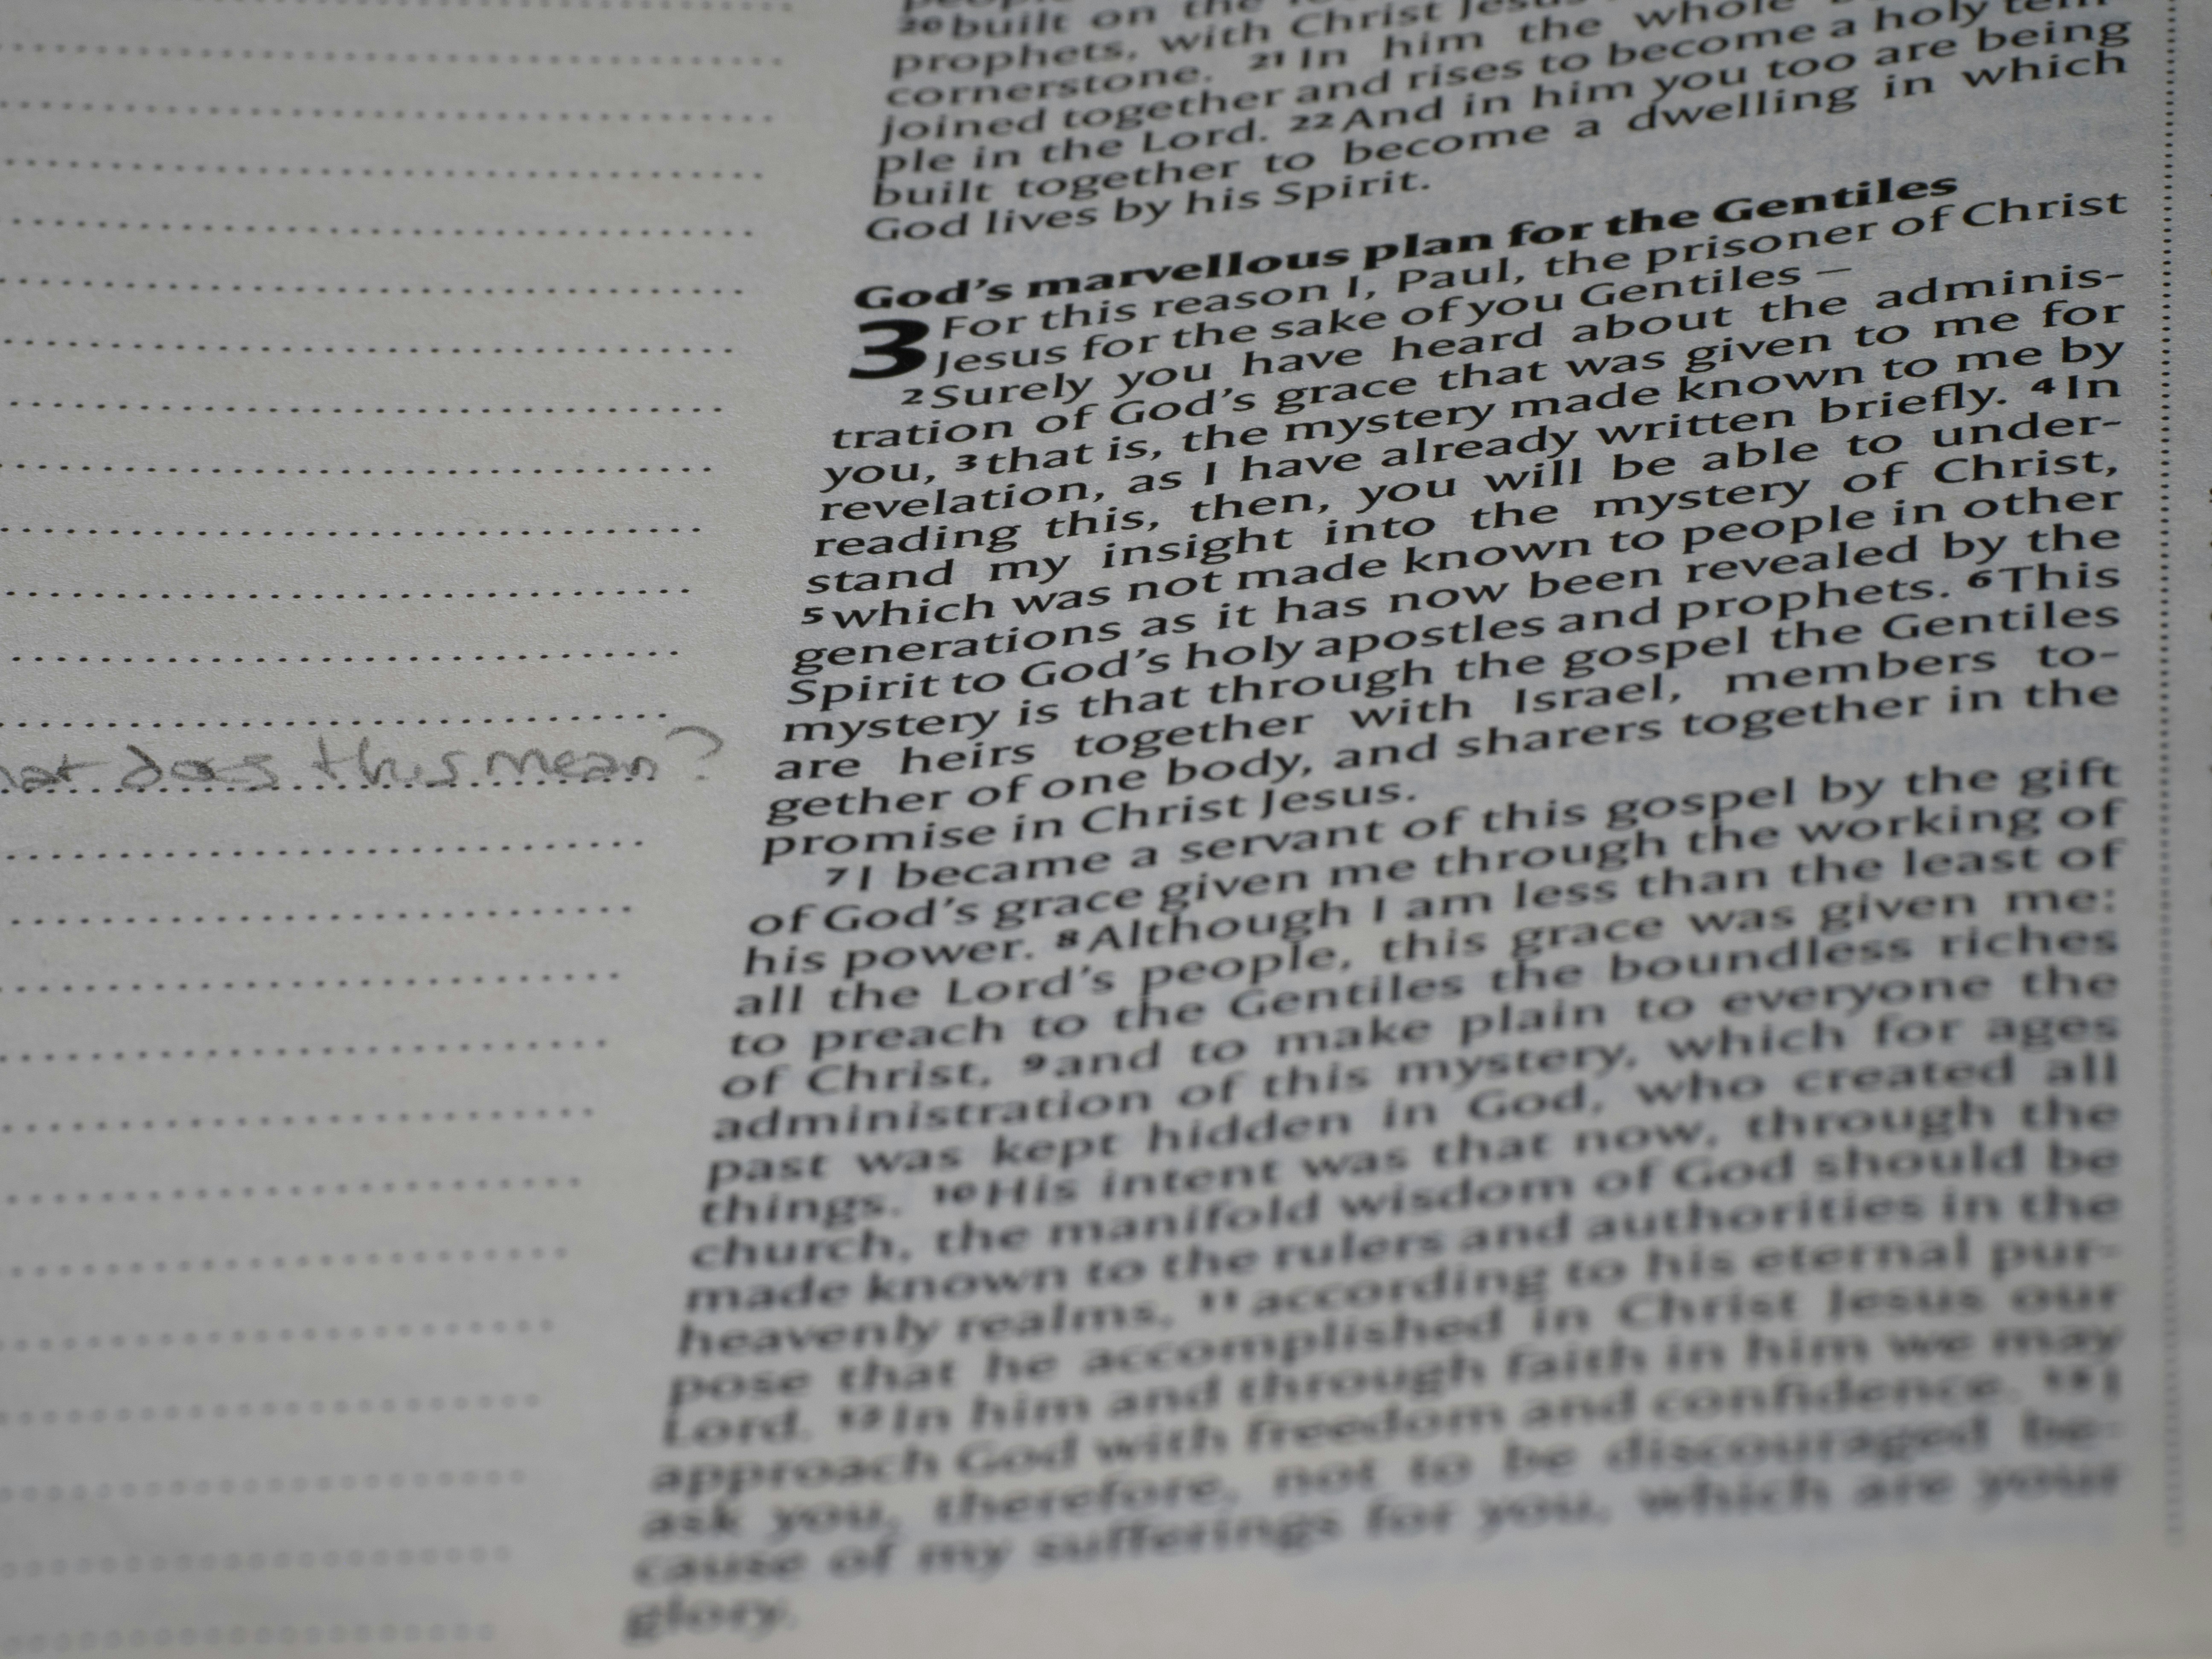 20 built on the
prophets, with Christ Jesus
cornerstone. 21 In him the whole
joined together and rises to become a holy tem-
ple in the Lord. 22 And in him you too are being
built together to become a dwelling in which
God lives by his Spirit.
God's marvellous plan for the Gentiles
3 For this reason I, Paul, the prisoner of Christ
Jesus for the sake of you Gentiles –
2 Surely you have heard about the adminis-
tration of God's grace that was given to me for
you, 3 that is, the mystery made known to me by
revelation, as I have already written briefly. 4 In
reading this, then, you will be able to under-
stand my insight into the mystery of Christ,
5 which was not made known to people in other
generations as it has now been revealed by the
Spirit to God's holy apostles and prophets. 6 This
mystery is that through the gospel the Gentiles
are heirs together with Israel, members to-
gether of one body, and sharers together in the
promise in Christ Jesus.
7 I became a servant of this gospel by the gift
of God's grace given me through the working of
his power. 8 Although I am less than the least of
all the Lord's people, this grace was given me:
to preach to the Gentiles the boundless riches
of Christ, 9 and to make plain to everyone the
administration of this mystery, which for ages
past was kept hidden in God, who created all
things. 10 His intent was that now, through the
church, the manifold wisdom of God should be
made known to the rulers and authorities in the
heavenly realms, 11 according to his eternal pur-
pose that he accomplished in Christ Jesus our
Lord. 12 In him and through faith in him we may
approach God with freedom and confidence. 13 I
ask you, therefore, not to be discouraged be-
cause of my sufferings for you, which are your
glory.
hat does this mean?